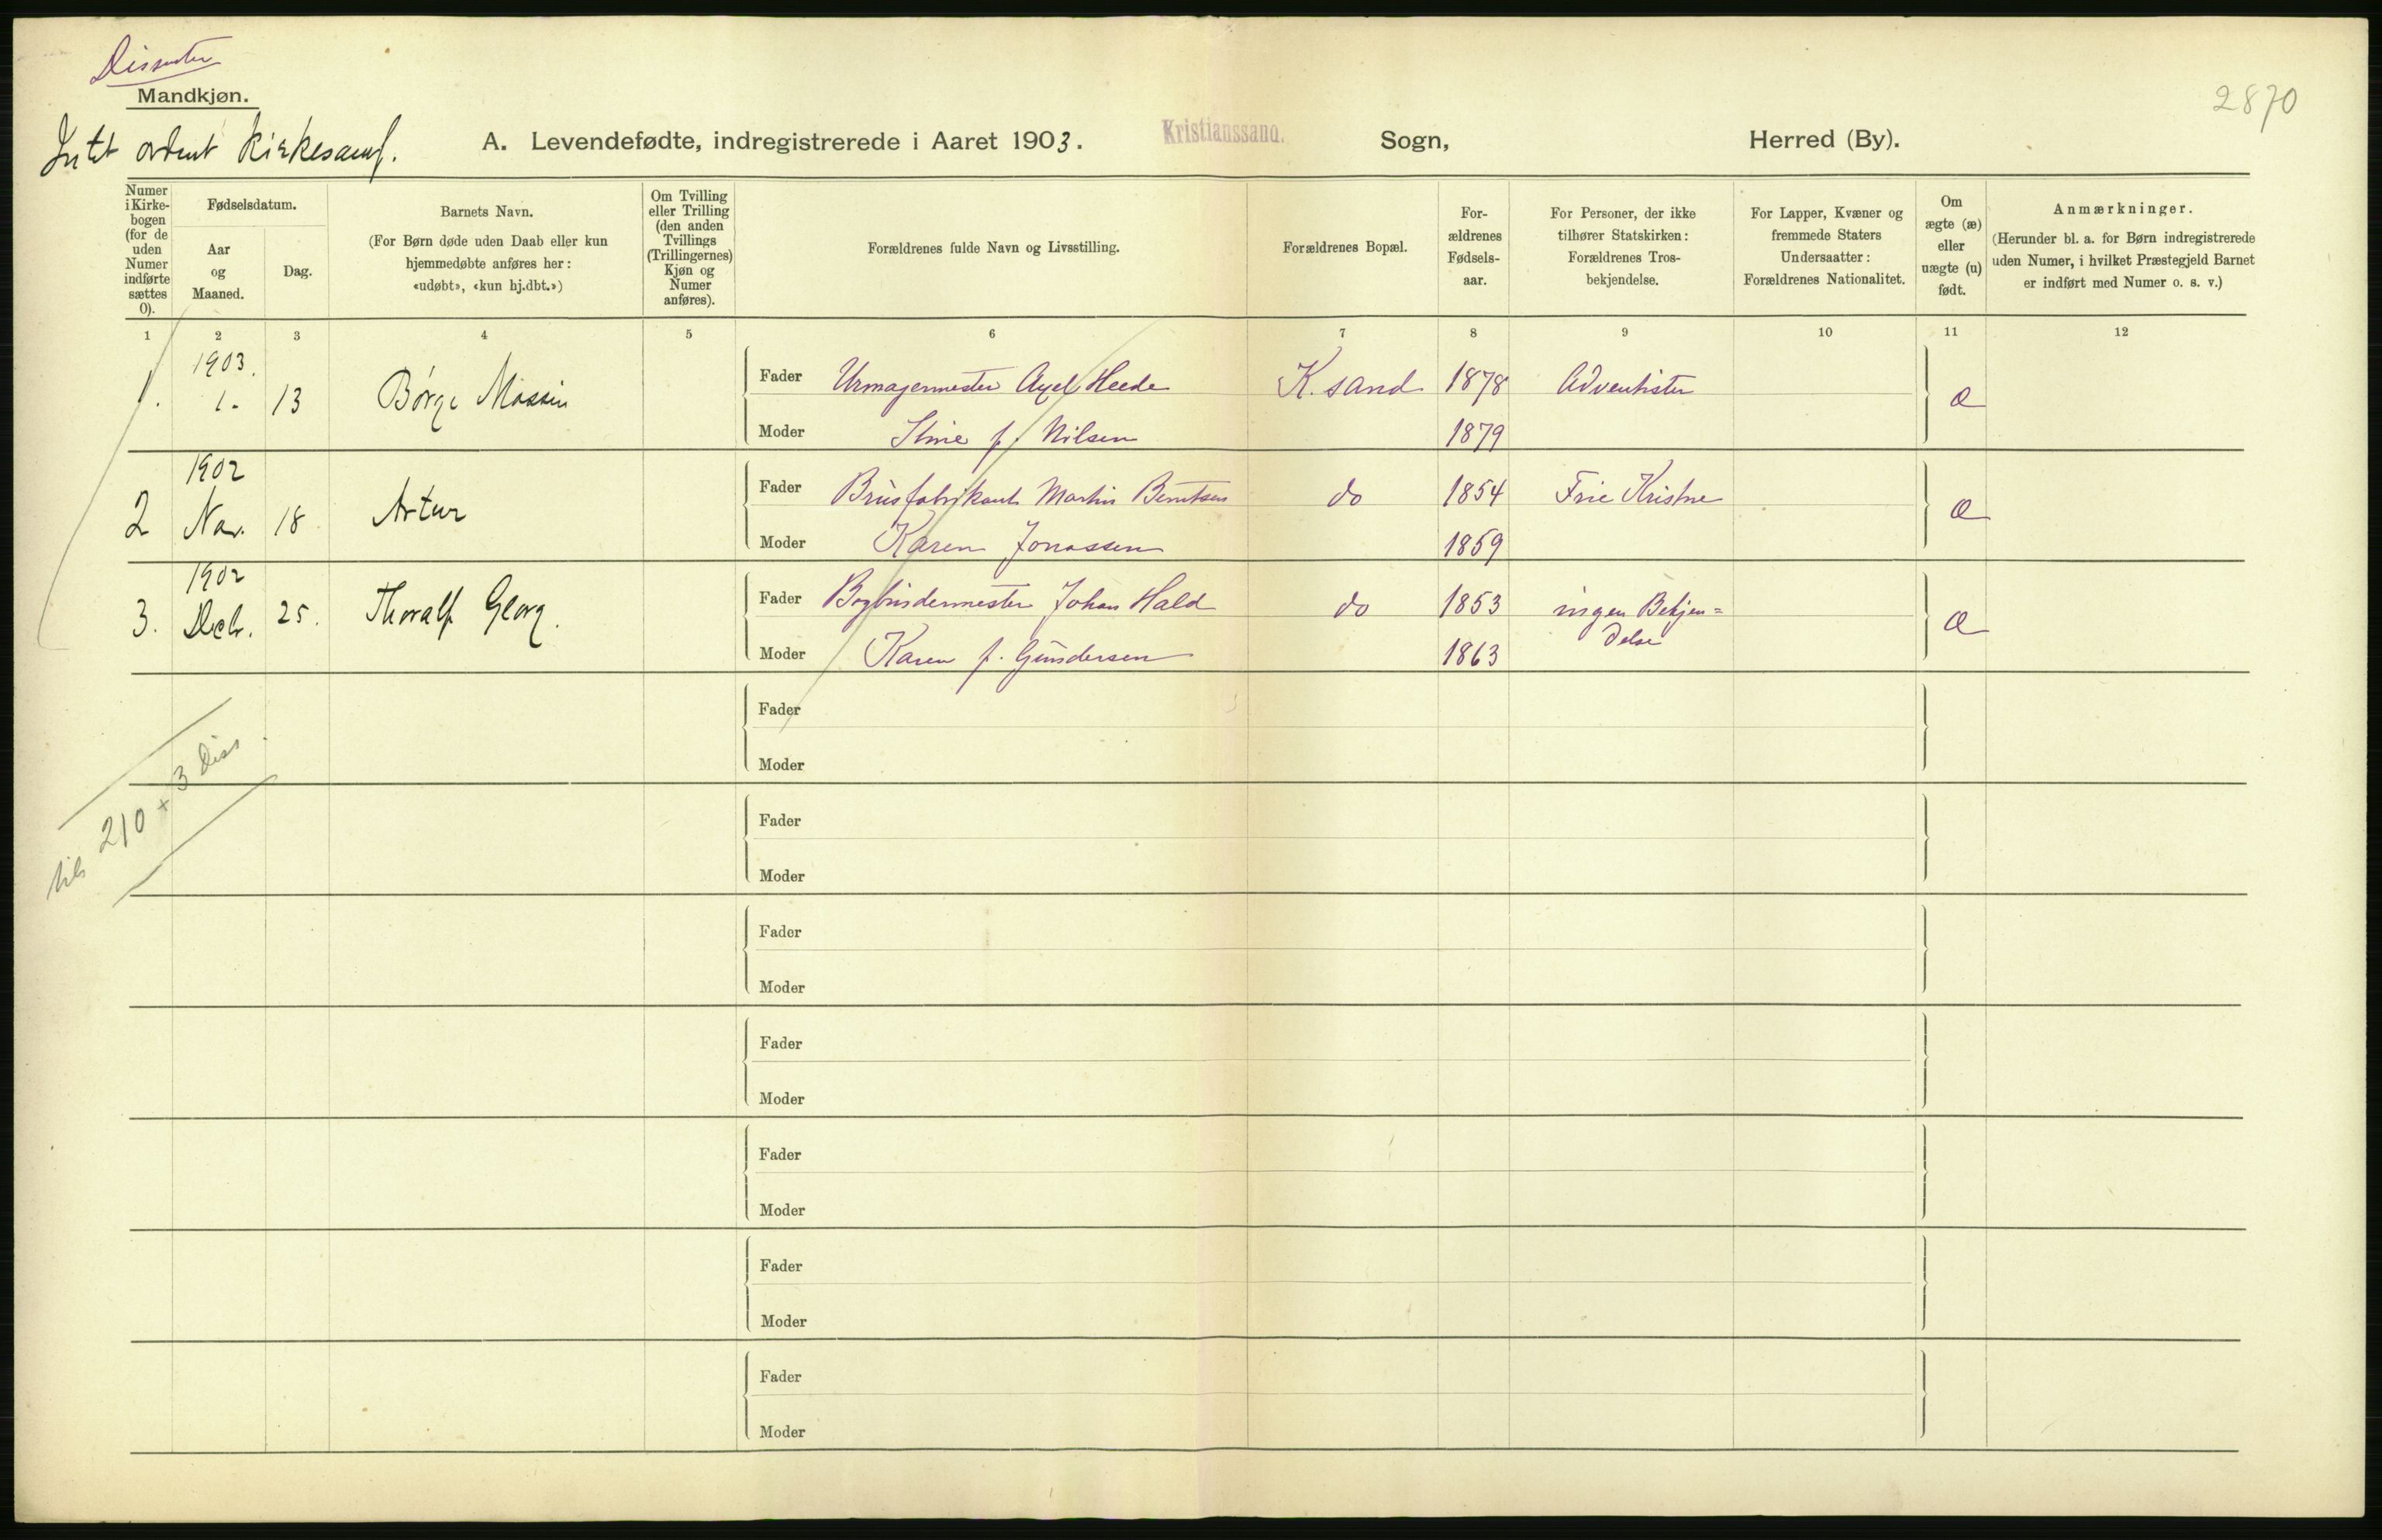 Dissenter
Mandkjøn.
2870
Intet ordent kirkesamf.
A. Levendefødte, indregistrerede i Aaret 1903. Kristianssand. Sogn, Herred (By).
Numer
i Kirke-
bogen
(for de
uden
Numer
indførte
sættes
0).
Fødselsdatum.
Aar
og
Maaned.
Dag.
Barnets Navn.
(For Børn døde uden Daab eller kun
hjemmedøbte anføres her:
«udøbt», «kun hj.dbt.»)
Om Tvilling
eller Trilling
(den anden
Tvillings
(Trillingernes)
Kjøn og
Numer
anføres).
Forældrenes fulde Navn og Livsstilling.
Forældrenes Bopæl.
For-
ældrenes
Fødsels-
aar.
For Personer, der ikke
tilhører Statskirken:
Forældrenes Tros-
bekjendelse.
For Lapper, Kvæner og
fremmede Staters
Undersaatter:
Forældrenes Nationalitet.
Om
ægte (æ)
eller
uægte (u)
født.
Anmærkninger.
(Herunder bl. a. for Børn indregistrerede
uden Numer, i hvilket Præstegjeld Barnet
er indført med Numer o. s. v.)
1 2 3 4 5 6 7 8 9 10 11 12
1903.
1. 1. 13 Børge Fader Urmagermester Axel Heede K.sand 1878 Adventister æ
Moder Stine f. Nilsen 1879
1902
2 Nov. 18 Artur Fader Brusfabrikant Martin Berntsen do 1854 Frie Kristne æ
Moder Karen Jonassen 1859
1902
3. Decb. 25. Thoralf Georg. Fader Bogbindermester Johan Hald do 1853 ingen Bekjen=
delse æ
Moder Karen f. Gundersen 1863
Fader
Moder
til 210 + 3 Diss
Fader
Moder
Fader
Moder
Fader
Moder
Fader
Moder
Fader
Moder
Fader
Moder